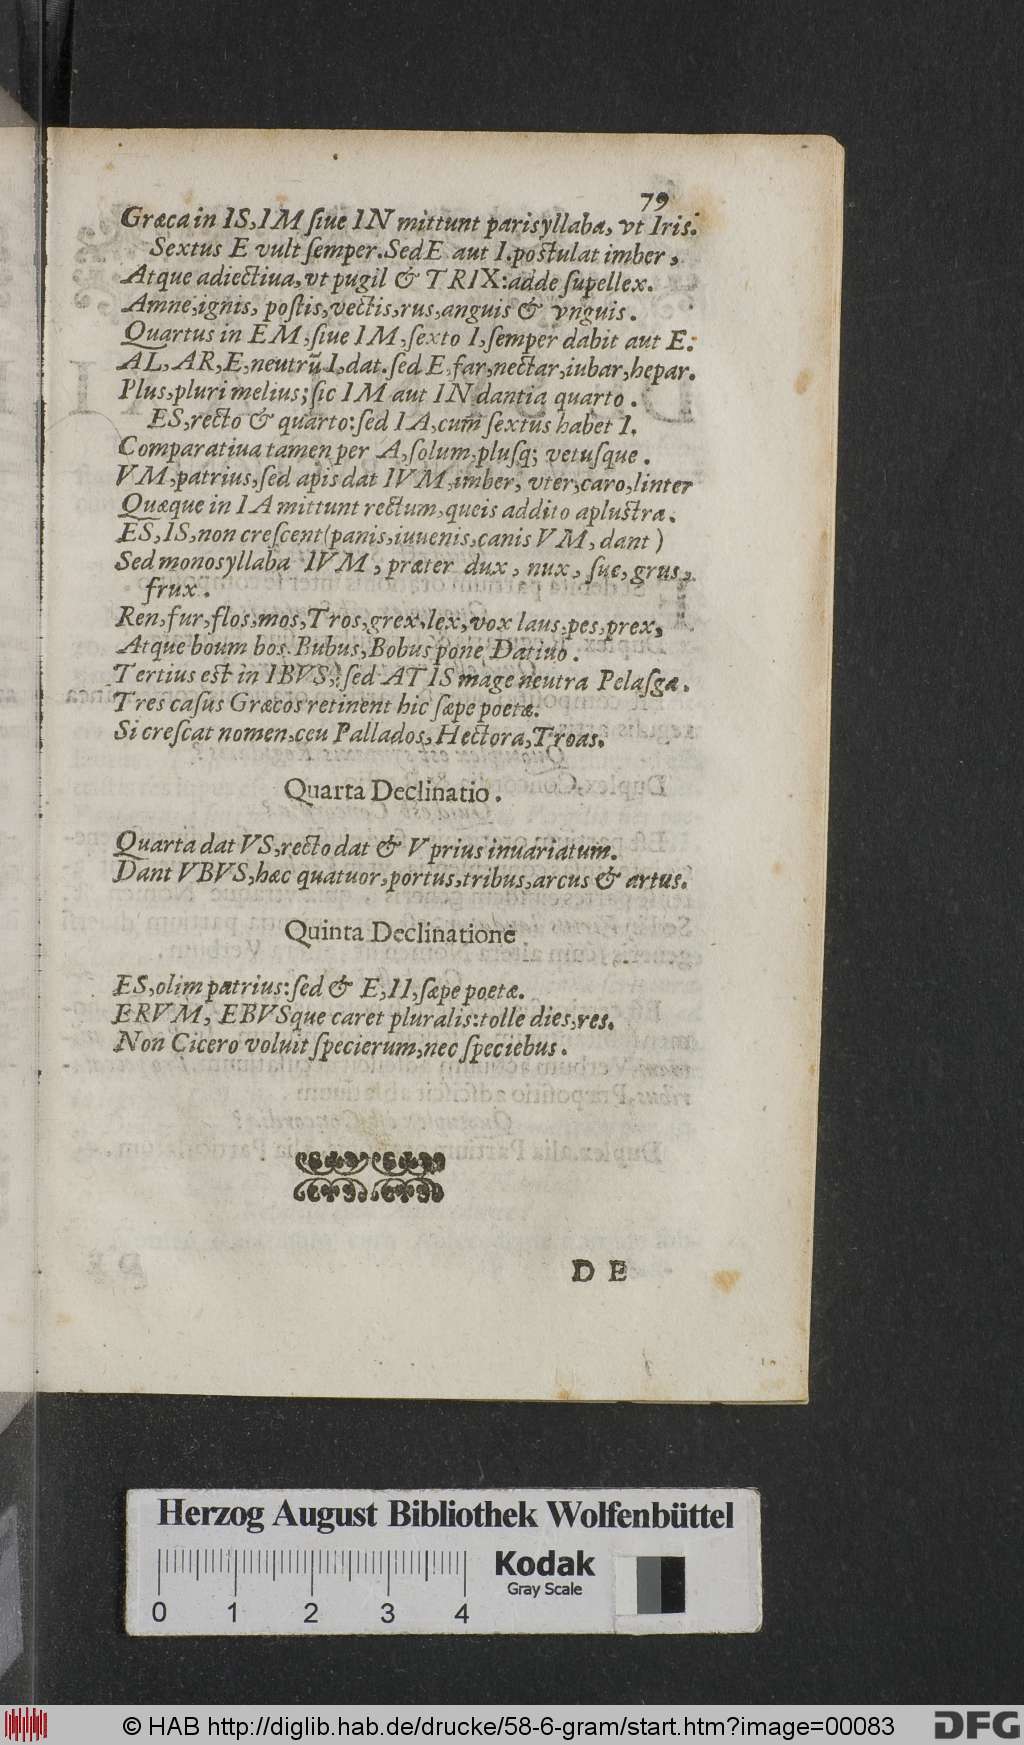 79
Græca in IS, IM ſiue IN mittunt pariſyllaba, vt Iris.
Sextus E vult ſemper. Sed E aut I. poſtulat imber,
Atque adiectiua, vt pugil & TRIX: adde ſupellex.
Amne, ignis, poſtis, vectis, rus, anguis & vnguis.
Quartus in EM, ſiue IM, ſexto I, ſemper dabit aut E.
AL, AR, E, neutrũ I, dat. ſed E, far, nectar, iubar, hepar.
Plus, pluri melius; ſic IM aut IN dantia quarto.
ES, recto & quarto: ſed IA, cum ſextus habet I.
Comparatiua tamen per A, ſolum, pluſq; vetuſque.
VM, patrius, ſed apis dat IVM, imber, vter, caro, linter
Quæque in IA mittunt rectum, queis addito apluſtra.
ES, IS, non creſcent (panis, iuuenis, canis VM, dant)
Sed monosyllaba IVM, præter dux, nux, ſue, grus,
frux.
Ren, fur, flos, mos, Tros, grex, lex, vox laus, pes, prex,
Atque boum bos. Bubus, Bobus pone Datiuo.
Tertius eſt in IBVS, ſed ATIS mage neutra Pelaſga.
Tres caſus Græcos retinent hic ſæpe poetæ.
Si creſcat nomen, ceu Pallados, Hectora, Troas.
Quarta Declinatio.
Quarta dat VS, recto dat & V prius inuariatum.
Dant VBVS, hæc quatuor, portus, tribus, arcus & artus.
Quinta Declinatione
ES, olim patrius: ſed & E, II, ſæpe poetæ.
ERVM, EBVSque caret pluralis: tolle dies, res.
Non Cicero voluit ſpecierum, nec ſpeciebus.
D E
Herzog August Bibliothek Wolfenbüttel
Kodak
Gray Scale
0 1 2 3 4
© HAB http://diglib.hab.de/drucke/58-6-gram/start.htm?image=00083
DFG